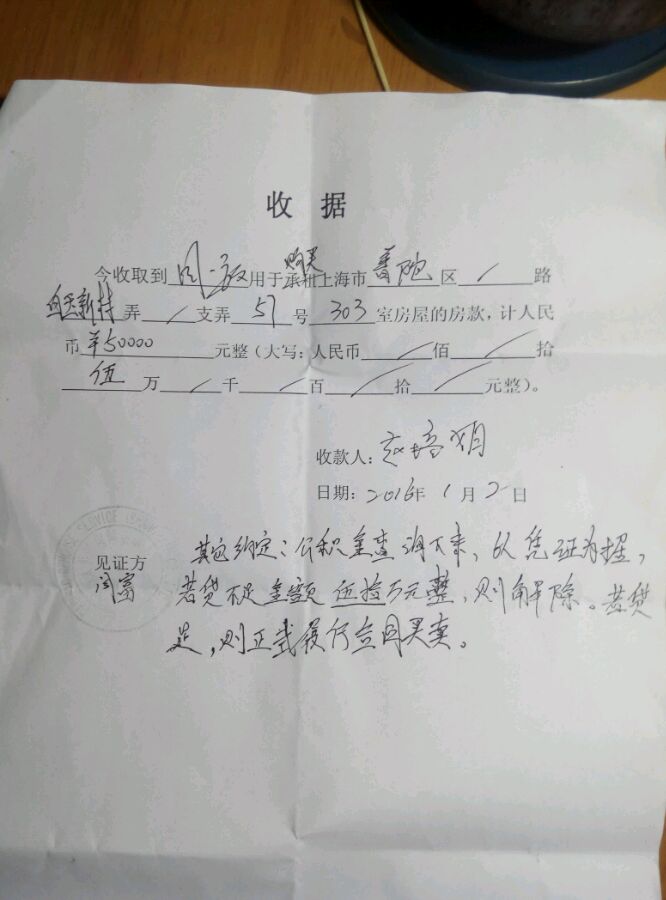 收 据
购买
今收取到 用于承租上海市 普陀 区 / 路
新村 弄 / 支弄 57 号 303 室房屋的房款，计人民
币 ￥50000 元整（大写：人民币 / 佰 / 拾
伍 万 / 千 / 百 / 拾 / 元整）。
收款人：赵培娟
日期：2016年 1 月 2 日
SERVICE
见证方
闵富
其它约定：公积金查询下来，以凭证为据，
若贷不足金额伍拾万元整，则解除。若贷
足，则正式履行合同买卖。